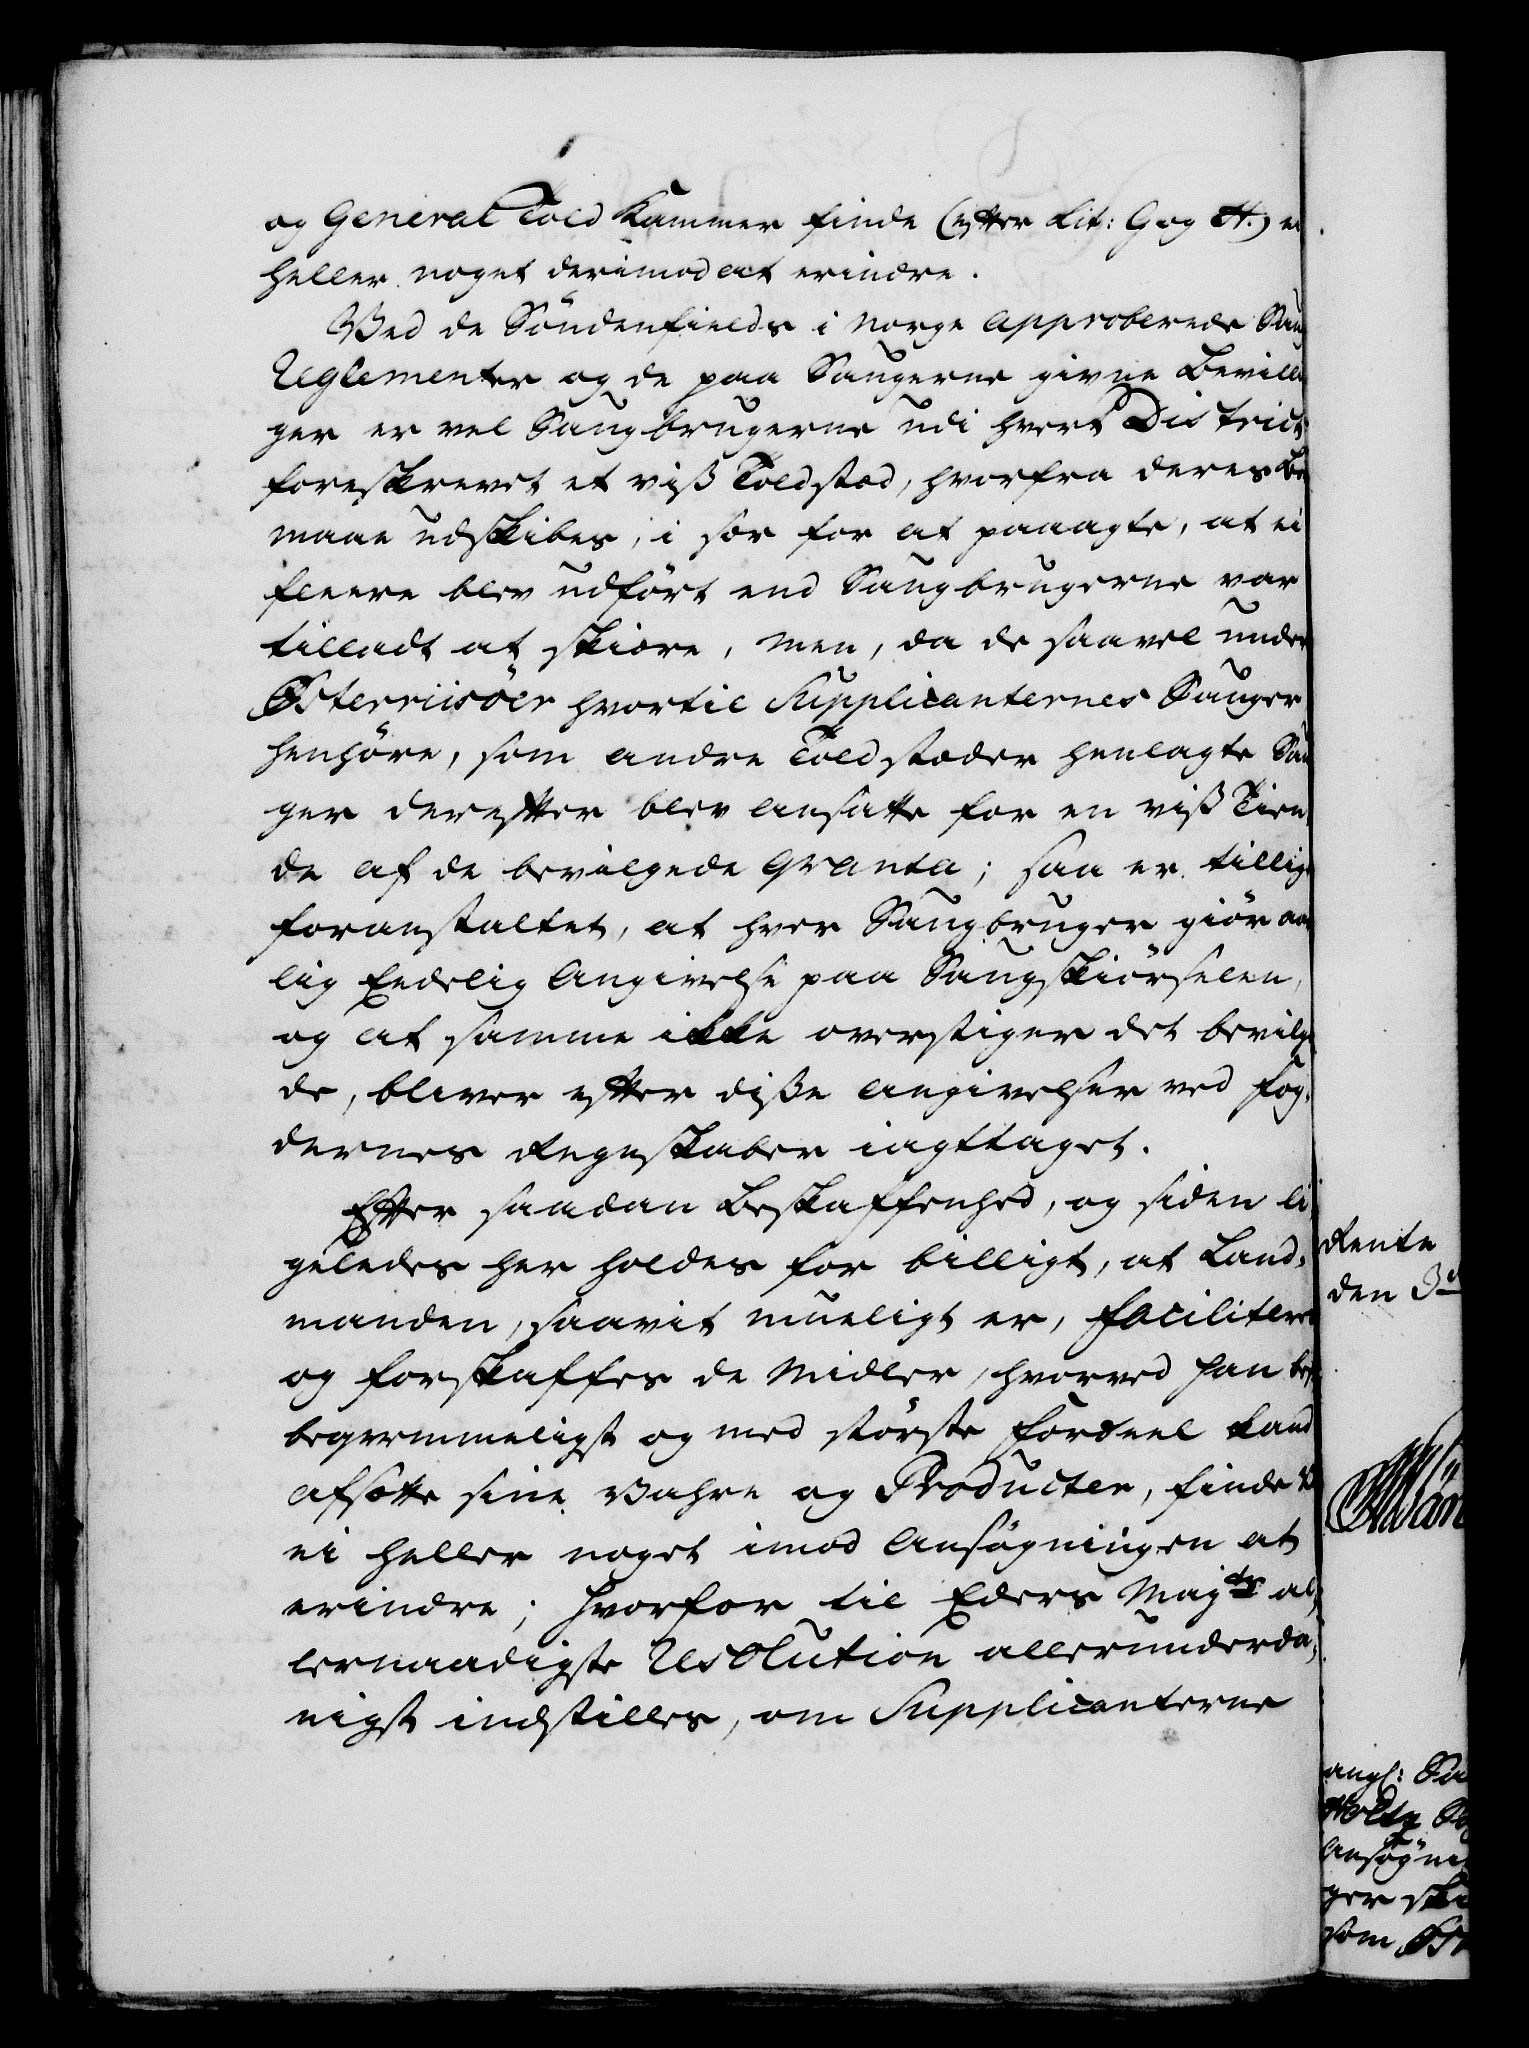 og General Told Kammer finde (efter Lit: G og H.) ei
heller noget derimod at erindre.
Ved de Söndenfields i Norge approberede Sau
Reglementer og de paa Saugerne givne Bevill
ger er vel Saugbrugerne udi hvert District
foreskrevet et viß Toldstæd, hvorfra deres Bo
maae udskibes, i sær for at paaagte, at ei
fleere blev udført end Saugbrugerne var
tilladt at skiære, men, da de saavel under
Østerriisöer hvortil Supplicanternes Sauger
henhöre, som andre Toldstæder henlagte Sau
ger derefter blev ansatte for en viß Tien
de af de bevilgede Qvanta; saa er tillige
foranstaltet, at hver Saugbruger giör aar
lig Eedelig Angivelse paa Saugskiörselen,
og at samme ikke overstiger det bevilge
de, bliver efter diße Angivelser ved Fog-
dernes Regnskaber iagttaget.
Efter saadan Beskaffenhed, og siden li
geledes her holdes for billigt, at Land-
manden, saavit mueligt er, faciliteres
og forskaffes de Midler, hvorved han
beqvemmeligst og med störste Fordeel kand
afsætte sine Vahre og Producter, finde Vi
ei heller noget imod Ansøgningen at
erindre; hvorfor til Eders Majts al-
lernaadigste Resolution allerunderda-
nigst indstilles, om Supplicanterne
Rente
den 3
angl: Sa
Holtz
Ansøgni
ger ski
som Øst